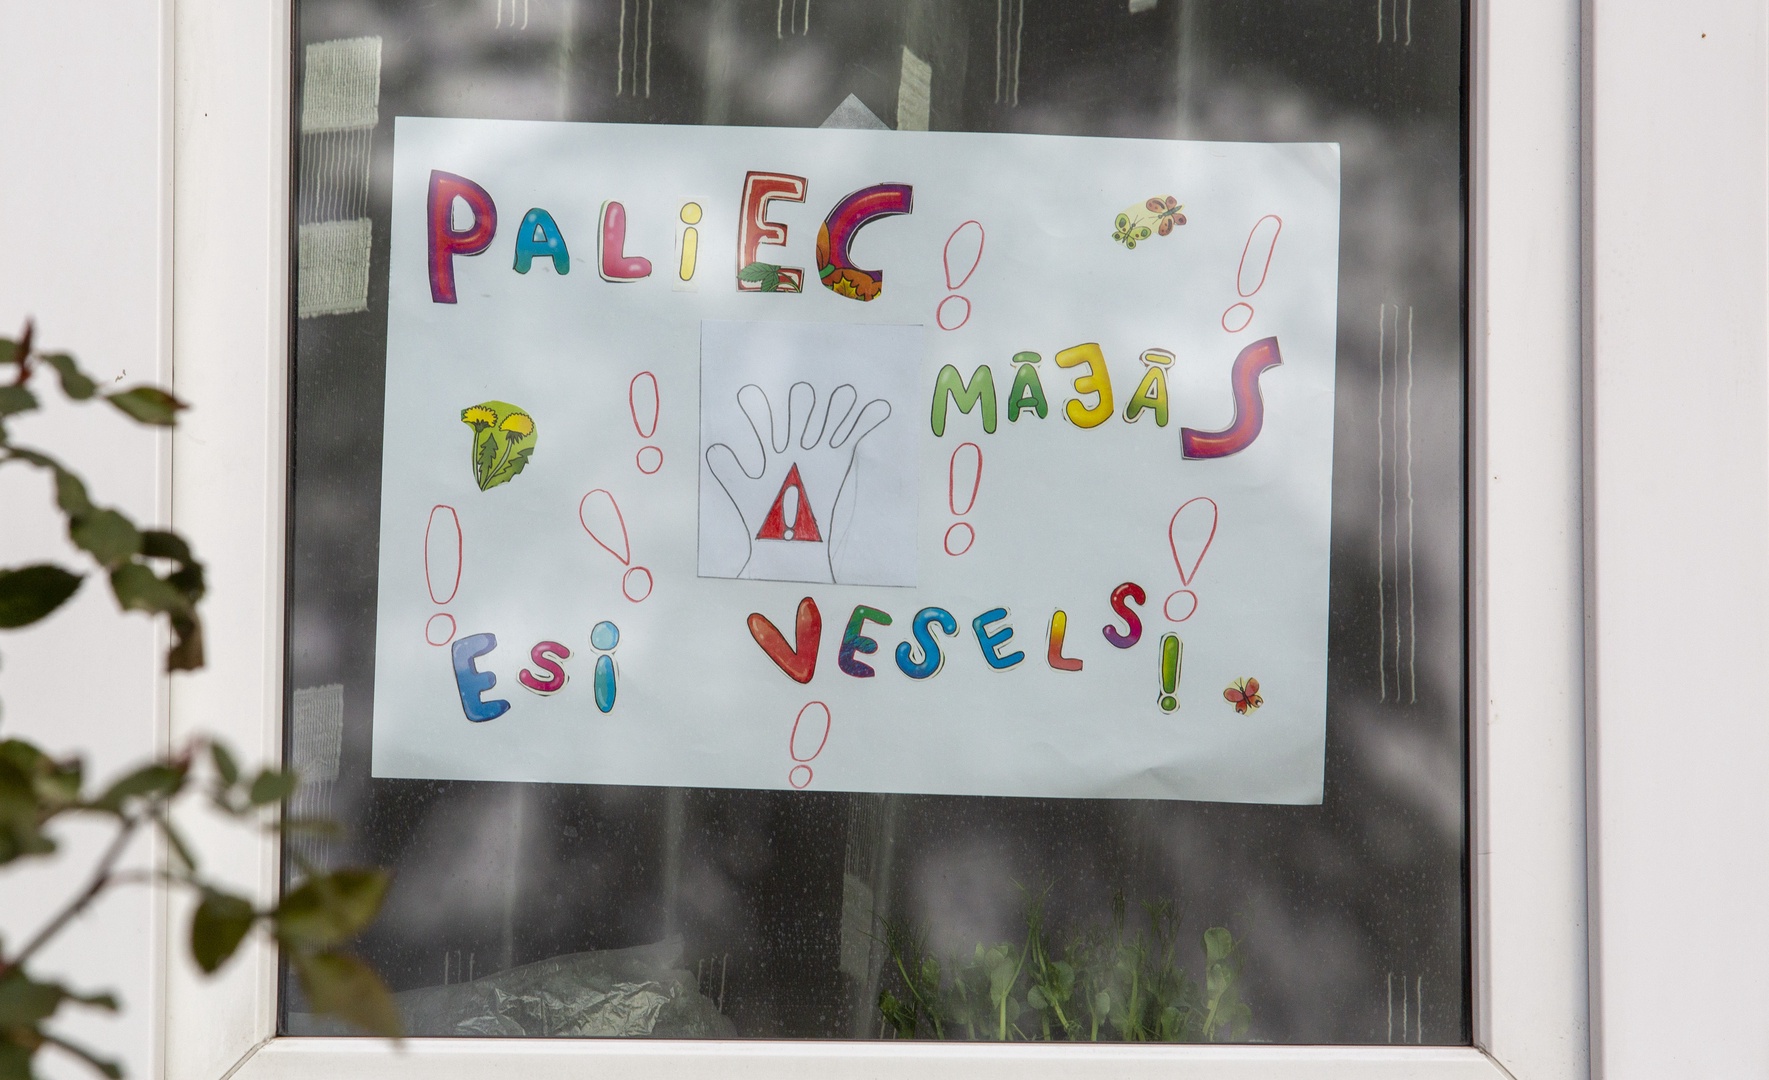 PALiEC
MĀJĀS
ESi VESELS!